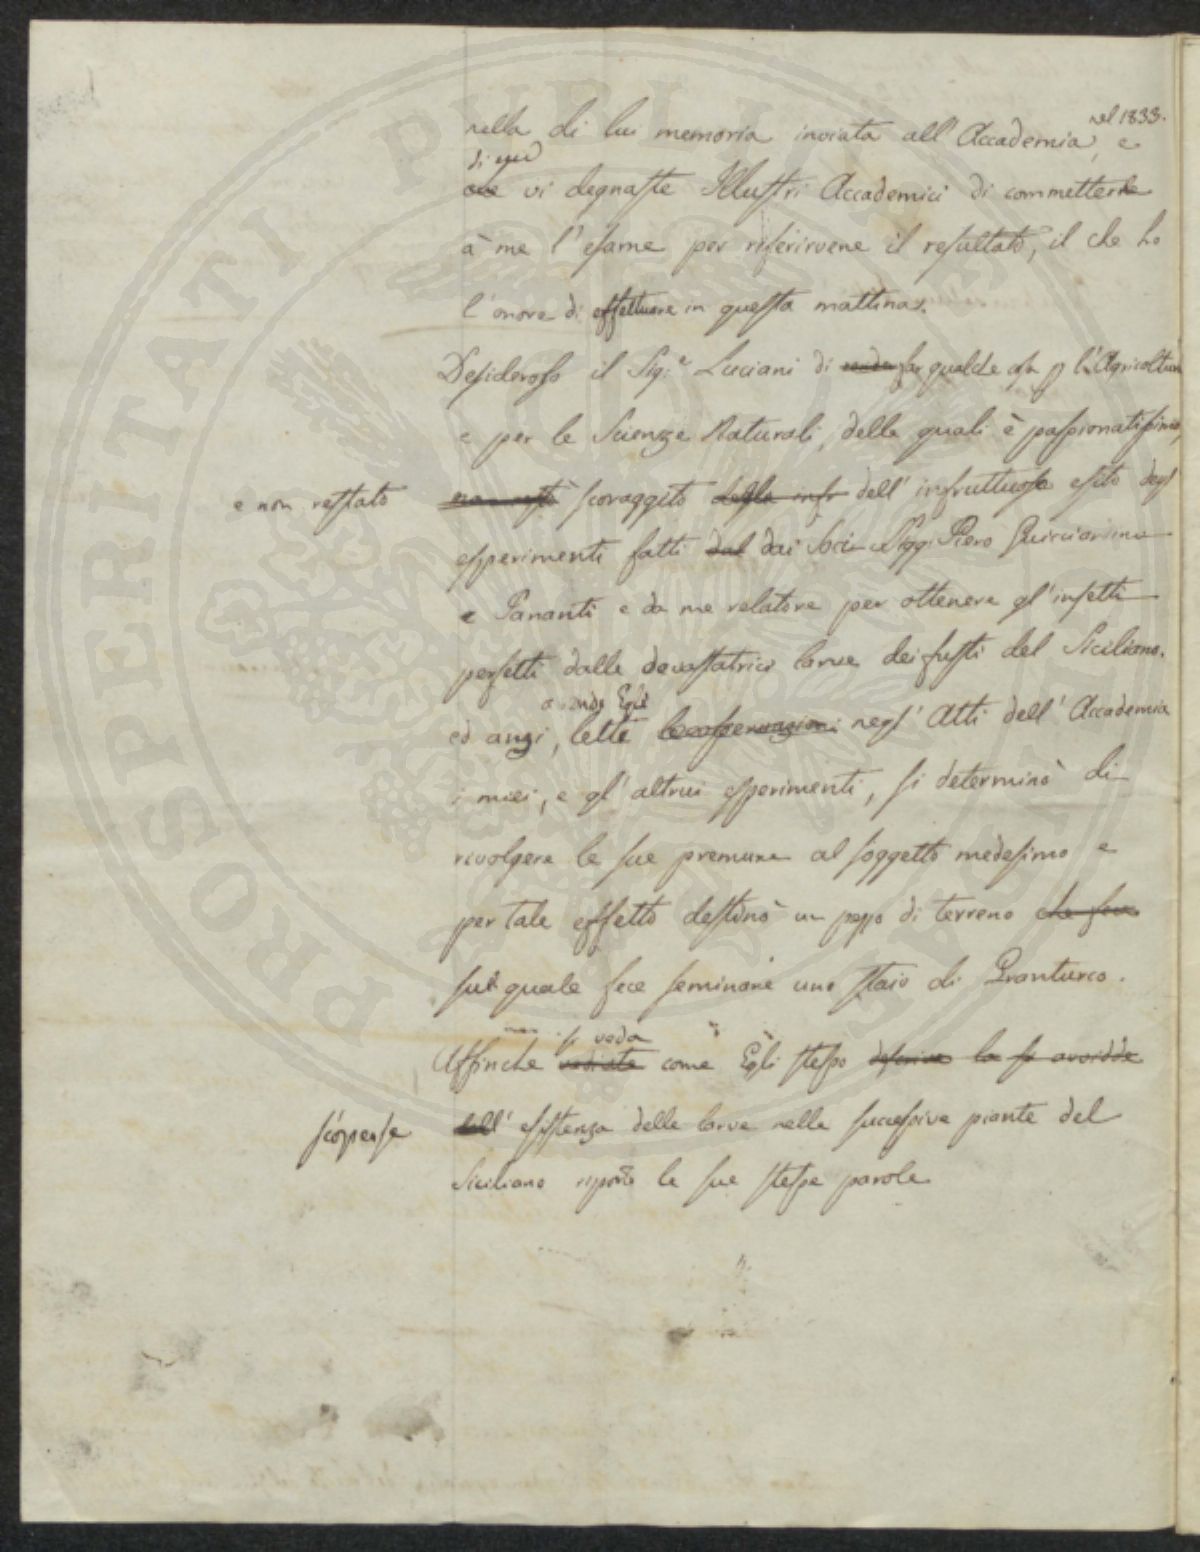 nel 1833.
nella di lui memoria inviata all' Accademia, e
di cui
che vi degnaste Illustri Accademici di commetterle
à me l'esame per riferirvene il resultato, il che ho
l'onore di effettuare in questa mattina.
Desideroso il Sig.e Luciani di far qualche cosa p l'Agricoltura
e per le Scienze Naturali, delle quali è passionatissimo,
e non restato scoraggito dell' infruttuoso esito degl'
esperimenti fatti dal dai Soci Sigg. Piero
e Pananti e da me relatore per ottenere gl'insetti
perfetti dalle devastatrici larve dei fusti del Siciliano.
avendo Egli
ed anzi, lette le osservazioni negl' Atti dell' Accademia
i miei, e gl' altrui esperimenti, si determinò di
rivolgere le sue premure al soggetto medesimo e
per tale effetto destinò un pezzo di terreno che fece
sul quale fece seminare uno staio di Granturco.
si veda
Affinche vediate come Egli stesso descrive la si avvidde
scoperse dell' esistenza delle larve nelle successive piante del
Siciliano riporto le sue stesse parole
PROSPERITATI PUBLICAE AUGENDAE